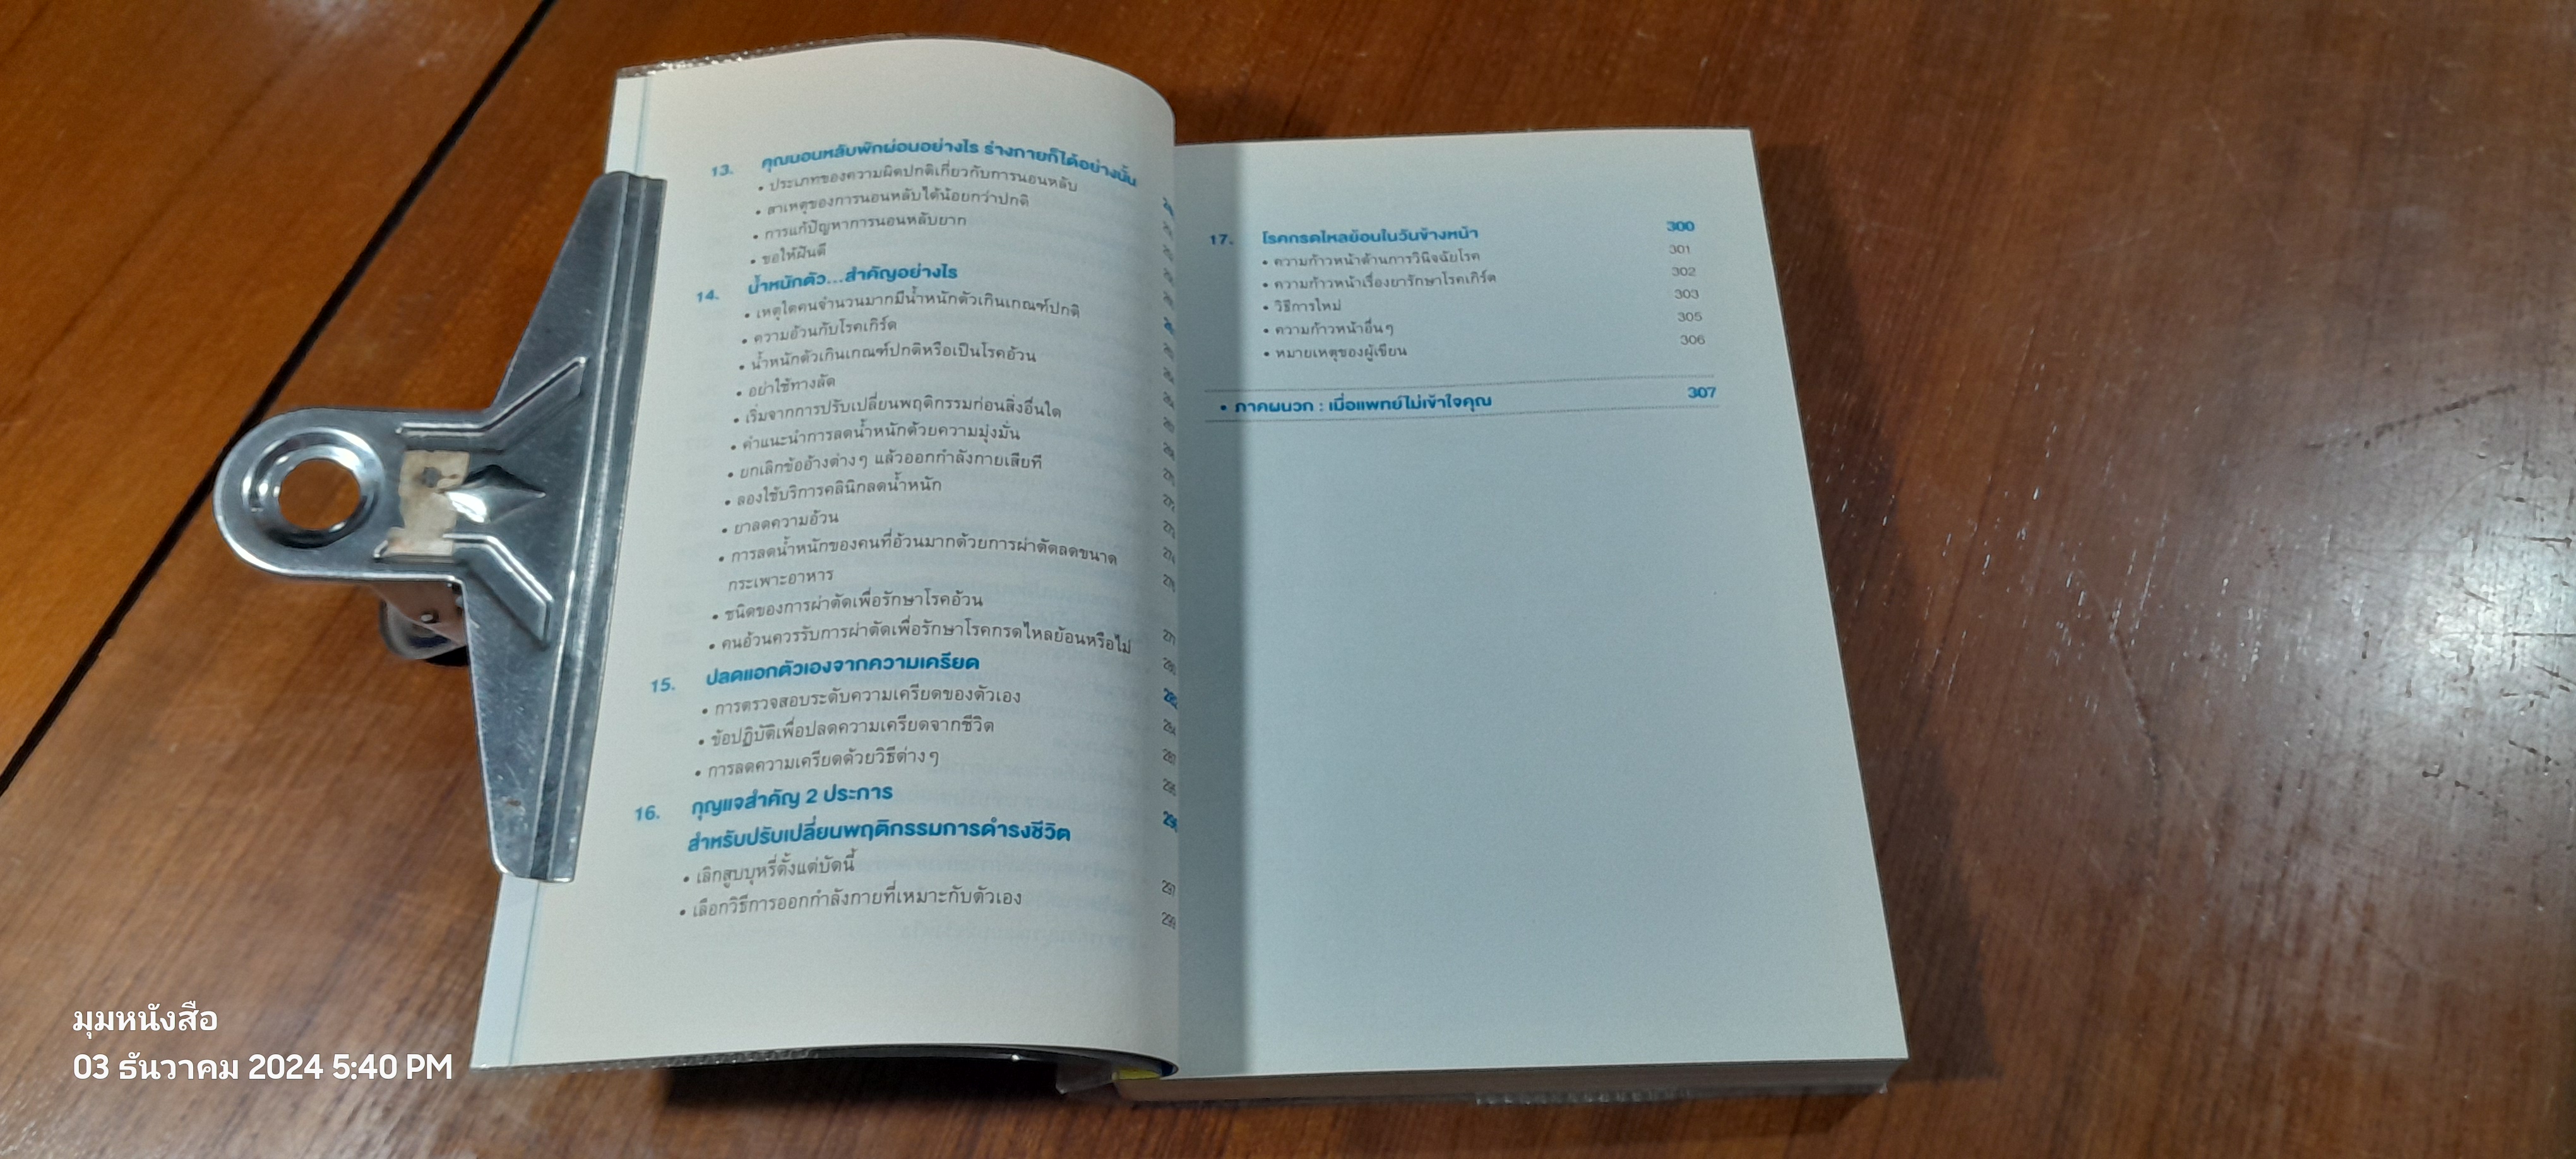 13. คุณนอนหลับพักผ่อนอย่างไร ร่างกายก็ได้อย่างนั้น
• ประเภทของความผิดปกติเกี่ยวกับการนอนหลับ
• สาเหตุของการนอนหลับได้น้อยกว่าปกติ
• การแก้ปัญหาการนอนหลับยาก
• ขอให้ฝันดี
14. น้ำหนักตัว...สำคัญอย่างไร
• เหตุใดคนจำนวนมากมีน้ำหนักตัวเกินเกณฑ์ปกติ
• ความอ้วนกับโรคเกิร์ด
• น้ำหนักตัวเกินเกณฑ์ปกติหรือเป็นโรคอ้วน
• อย่าใช้ทางลัด
• เริ่มจากการปรับเปลี่ยนพฤติกรรมก่อนสิ่งอื่นใด
• คำแนะนำการลดน้ำหนักด้วยความมุ่งมั่น
• ยกเลิกข้ออ้างต่างๆ แล้วออกกำลังกายเสียที
• ลองใช้บริการคลินิกลดน้ำหนัก
• ยาลดความอ้วน
• การลดน้ำหนักของคนที่อ้วนมากด้วยการผ่าตัดลดขนาด
กระเพาะอาหาร
• ชนิดของการผ่าตัดเพื่อรักษาโรคอ้วน
• คนอ้วนควรรับการผ่าตัดเพื่อรักษาโรคกรดไหลย้อนหรือไม่
15. ปลดแอกตัวเองจากความเครียด
• การตรวจสอบระดับความเครียดของตัวเอง
• ข้อปฏิบัติเพื่อปลดความเครียดจากชีวิต
• การลดความเครียดด้วยวิธีต่างๆ
16. กุญแจสำคัญ 2 ประการ
สำหรับปรับเปลี่ยนพฤติกรรมการดำรงชีวิต
• เลิกสูบบุหรี่ตั้งแต่บัดนี้ 297
• เลือกวิธีการออกกำลังกายที่เหมาะกับตัวเอง 299
17. โรคกรดไหลย้อนในวันข้างหน้า 300
• ความก้าวหน้าด้านการวินิจฉัยโรค 301
• ความก้าวหน้าเรื่องยารักษาโรคเกิร์ด 302
• วิธีการใหม่ 303
• ความก้าวหน้าอื่นๆ 305
• หมายเหตุของผู้เขียน 306
• ภาคผนวก : เมื่อแพทย์ไม่เข้าใจคุณ 307
มุมหนังสือ
03 ธันวาคม 2024 5:40 PM